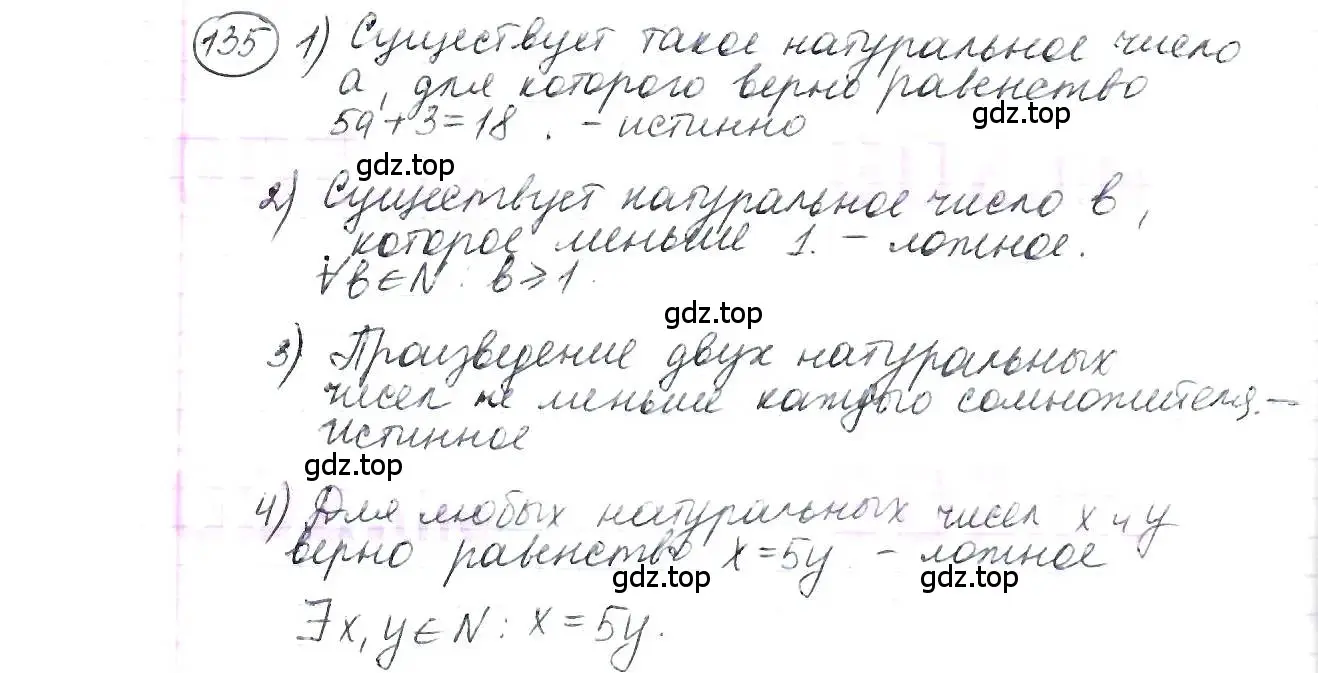 135 1) Существует такое натуральное число
а, для которого верно равенство
5а + 3 = 18 . - истинно
gdz.top
gdz.top
2) Существует натуральное число в,
которое меньше 1. - ложное.
∀в∈N : в ⩾ 1.
gdz.top
3) Произведение двух натуральных
чисел не меньше каждого сомножителя. -
истинное
gdz.top
4) Для любых натуральных чисел х и у
верно равенство х = 5у - ложное
gdz.top gdz.top
∃х, у ∈ N : х = 5у.